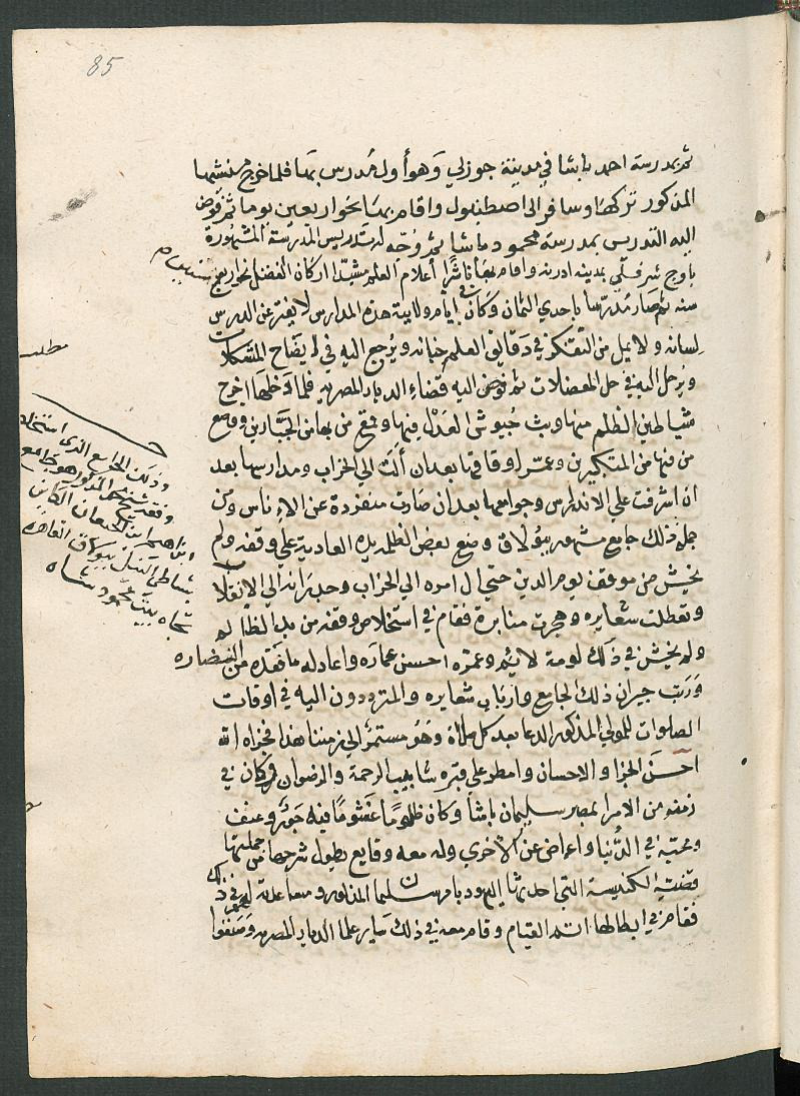 85
ثم بمدرسة احمد باشا في مدينة جورلي وهو أول مدرس بها فلما خرج منشيها
المذكور تركها وسافر الى اصطنبول واقام بها نحو اربعين يوما ثم فوض
اليه التدريس بمدرسة محمود باشا ثم وجه له تدريس المدرسة المشهورة
باوج شرفلي بمدينه ادرنه واقام بها ناشرا أعلام العلم مشيدا اركان الفضل نحوا من
سنه ثم صار مدرسا باحدي الثمان وكان في ايام ولايته هذه المدارس لا يفتر عن الدرس
لسانه ولا يمل من التفكر في دقايق العلم جنانه ويرجع اليه في ايضاح المشكلات
ويرحل اليه في حل المعضلات ثم فوض اليه قضاء الديار المصريه فلما دخلها اخرج
شياطين الظلم منها وبث جيوش العدل فيها وقمع من بها من الجبارين ووضع
من فيها من المتكبرين وعمر اوقافها بعد ان آلت الي الخراب ومدارسها بعد
ان اشرفت علي الاندراس وجوامعها بعد ان صارت منفردة عن الايناس ومن
جملة ذلك جامع مشهور ببولاق وضع بعض الظلمه يده العادية علي وقفه ولم
يخش من موقف يوم الدين حتي ال امره الي الخراب وجدرانه الي الانقلاب
وتعطلت شعايره وهجرت منابره فقام في استخلاص وقفه من يد الظالم
ولم يخش في ذلك لومة لايم وعمره احسن عماره واعاد له ما فقده من النضاره
ورتب جيران ذلك الجامع وارباب شعايره والمترددون اليه في اوقات
الصلوات للمولي المذكور الدعا بعد كل صلاة وهو مستمر الي زمننا هذا فجزاه الله
احسن الجزا والاحسان وامطر علي قبره شابيب الرحمة والرضوان وكان في
زمنه من الامرا بمصر سليمان باشا وكان ظلوما غشوما فيه جور وعسف
ومحبة في الدنيا واعراض عن الاخري وله معه وقايع يطول شرحها من جملتها
قضية الكنيسة التي احدثها اليهود بامر سليمان المذكور ومساعدته لهم في ذلك
فقام في ابطالها اتم القيام وقام معه في ذلك ساير علما الديار المصريه وصنفوا
مطلب
وذلك الجامع الذي استخلص
وقفه شيخنا المذكور هو جامع
ابراهيم ابن الجيعان الكاين
بشاطي النيل ببولاق القاهره
تجاه بيت محمود شاه